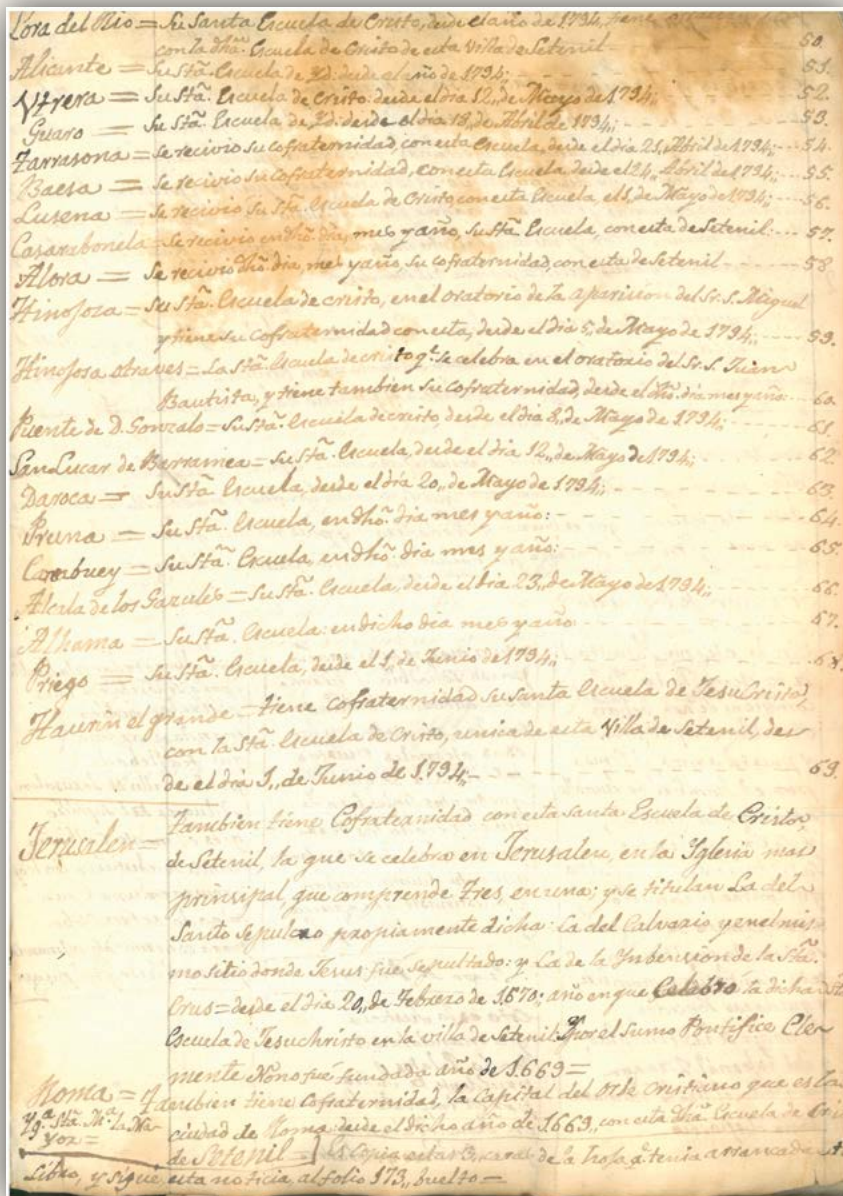 Lora del Rio = Su Santa Escuela de Cristo, desde el año de 1794, tiene
con la dhã. Escuela de Cristo de esta Villa de Setenil - 50.
Alicante = Su Stã. Escuela de Id: desde el año de 1794; - 51.
Vtrera = Su Stã. Escuela de Cristo: desde el dia 12,, de Mayo de 1794; 52.
Guaro = Su Stã. Escuela de Id: desde el dia 18,, de Abril de 1794; 53.
Tarrasona = se recivio su cofraternidad, con esta Escuela, desde el dia 21, Abril de 1794; 54.
Baesa = Se recivio su cofraternidad, con esta Escuela, desde el 24,, Abril de 1794; 55.
Lusena = Se recivio su Stã. Escuela de Cristo, con esta Escuela, el 1, de Mayo de 1794; 56.
Casarabonela = Se recivio en dhõ. dia, mes y año, su Stã. Escuela, con esta de Setenil: 57.
Alora = Se recivio dhõ. dia, mes y año, su cofraternidad, con esta de Setenil 58
Hinojoza = Su Stã. Escuela de cristo, en el oratorio de la aparicion del Sr. S. Miguel
y tiene su Cofraternidad con esta, desde el dia 5,, de Mayo de 1794; 59.
Hinojosa otra ves = La Stã. Escuela de cristo q.e se celebra en el oratorio del Sr. S. Juan
Bautista, y tiene tambien su Cofraternidad, desde el dhõ. dia mes y año: 60.
Puente de D. Gonzalo = Su Stã. Escuela de cristo, desde el dia 8,, de Mayo de 1794; 61.
San Lucar de Barramea = Su Stã. Escuela, desde el dia 12,, de Mayo de 1794; 62.
Daroca = Su Stã. Escuela, desde el dia 20,, de Mayo de 1794; 63.
Pruna = Su Stã. Escuela, en dhõ. dia mes y año: 64.
Carcbuey = Su Stã. Escuela, en dhõ. dia mes y año: 65.
Alcala de los Gazules = Su Stã. Escuela, desde el dia 23,, de Mayo de 1794; 66.
Alhama = Su Stã. Escuela: en dicho dia mes y año 67.
Priego = Su Stã. Escuela, desde el 1, de Junio de 1794; 68.
Haurin el grande = tiene cofraternidad su santa Escuela de Jesu Cristo,
con la Stã. Escuela de Cristo, unica de esta Villa de Setenil, des
de el dia 1,, de Junio de 1.794; - 69.
Jerusalen = Tambien tiene Cofrateanidad con esta santa Escuela de Cristo,
de Setenil, la que se celebra en Jerusalen, en la Yglesia mas
prinsipal, que comprende Tres, en una; y se titulan La del
Santo sepulcro propiamente dicha: la del Calvario y en el mis
mo sitio donde Jesus fué sepultado: y La de la Ynbension de la Stã.
Crus = desde el dia 20,, de Febrero de 1.670; año en que Celebró la dicha
Escuela de Jesuchristo en la villa de Setenil: Por el sumo Pontifice Cle
mente Nono fué fundada año de 1.669 =
Roma = Tambien tiene Cofraternidad, la Capital del Orbe Cristiano que es la
Yg.ª Stã. M.ª la Ma- ciudad de Roma desde el dicho año de 1.669, con esta dhã. Escuela de
yor = de Setenil = de la hoja q. tenia arrancada
Libro, y sigue esta noticia al folio 173,, buelto =